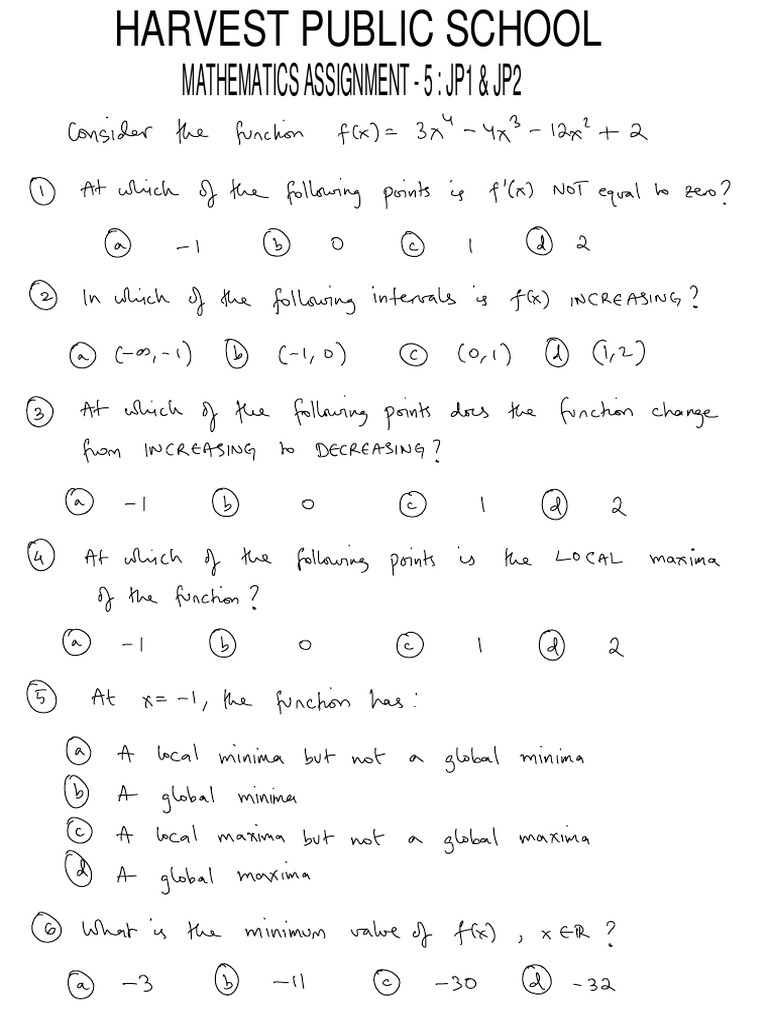 HARVEST PUBLIC SCHOOL
MATHEMATICS ASSIGNMENT - 5 : JP1 & JP2
Consider the function f(x) = 3x⁴ - 4x³ - 12x² + 2
① At which of the following points is f'(x) NOT equal to zero?
ⓐ -1 ⓑ 0 ⓒ 1 ⓓ 2
② In which of the following intervals is f(x) INCREASING?
ⓐ (-∞, -1) ⓑ (-1, 0) ⓒ (0, 1) ⓓ (1, 2)
③ At which of the following points does the function change
from INCREASING to DECREASING?
ⓐ -1 ⓑ 0 ⓒ 1 ⓓ 2
④ At which of the following points is the LOCAL maxima
of the function?
ⓐ -1 ⓑ 0 ⓒ 1 ⓓ 2
⑤ At x = -1, the function has:
ⓐ A local minima but not a global minima
ⓑ A global minima
ⓒ A local maxima but not a global maxima
ⓓ A global maxima
⑥ What is the minimum value of f(x), x ∈ ℝ ?
ⓐ -3 ⓑ -11 ⓒ -30 ⓓ -32